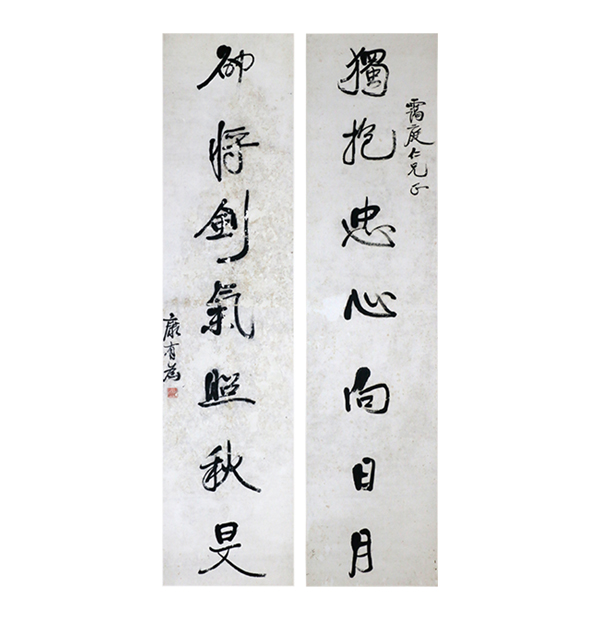 靄庭仁兄正
獨抱忠心向日月
卻將劍氣照秋旻
康有為